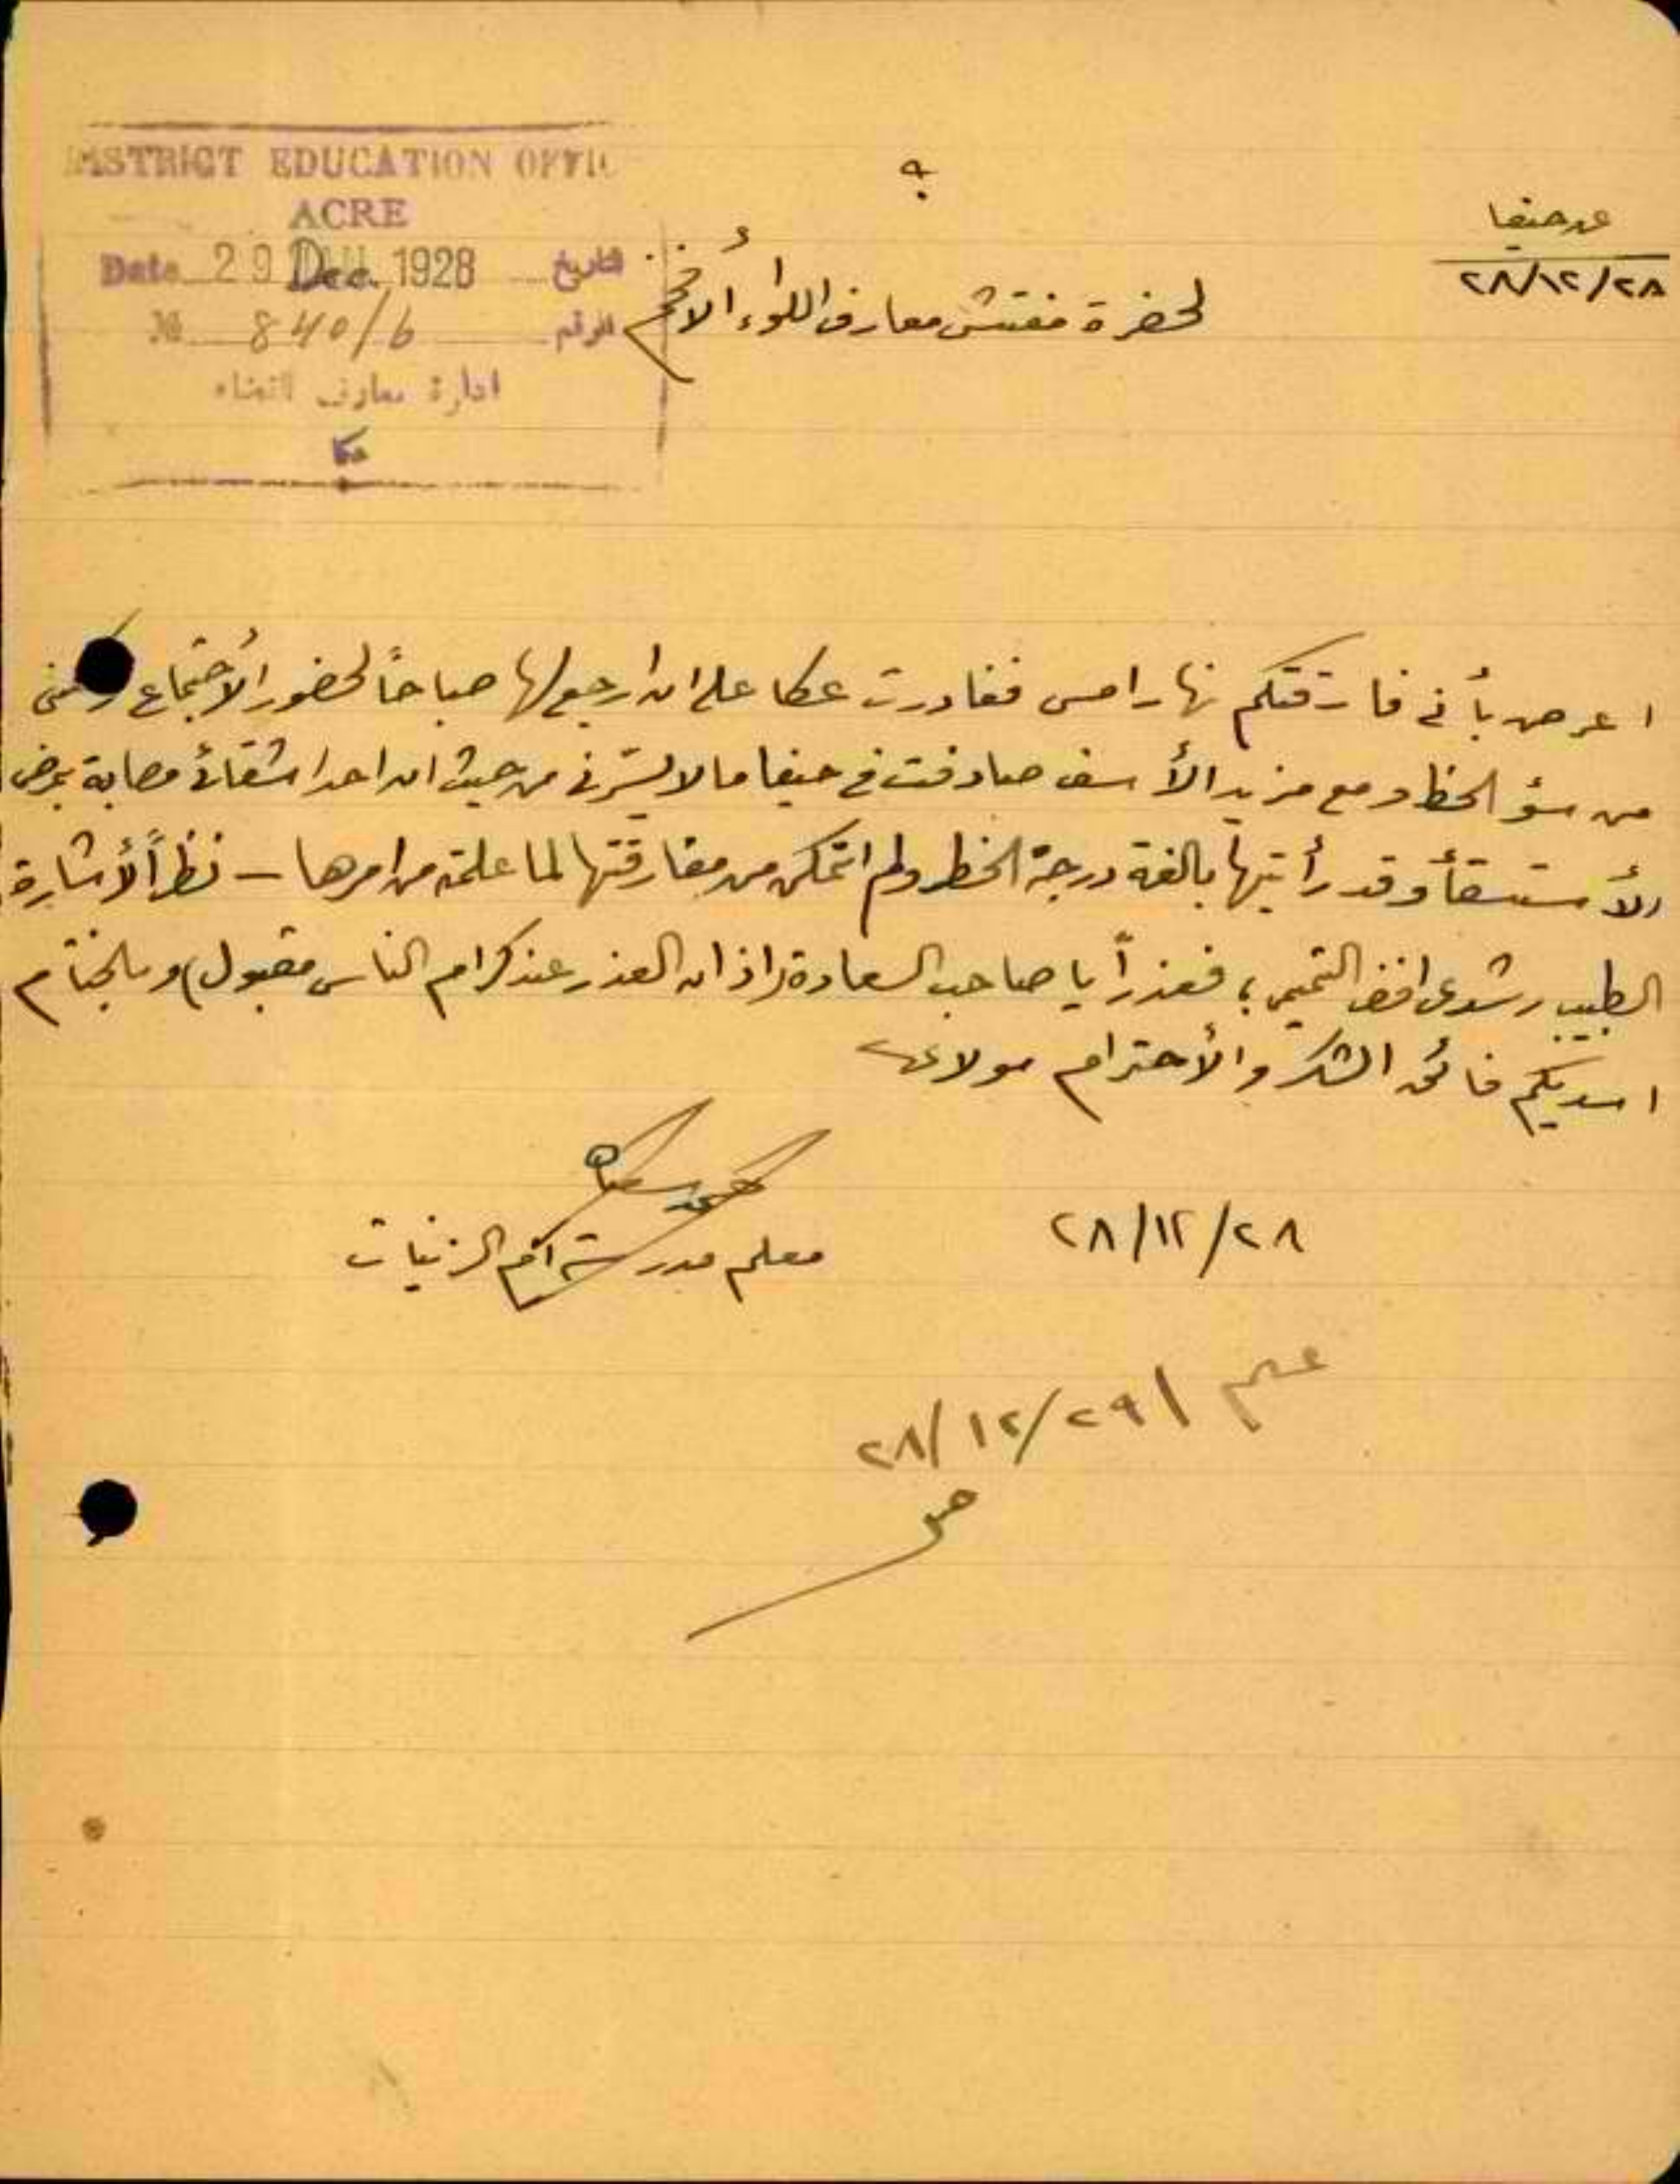 DISTRICT EDUCATION OFFIC
ACRE
Date 29 Dec. 1928 التاريخ
№ 840/6 الرقم
ادارة معارف القضاء
عكا
عن حيفا
٢٨/١٢/٢٨
لحضرة مفتش معارف اللواء الأفخم
اعرض بأني فارقتكم نهار امس فغادرت عكا على ان ارجع لها صباحاً لحضور الأجتماع ولكنني
من سؤ الحظ ومع مزيد الأسف صادفت في حيفا ما لا يسرني من حيث ان احدا شقائي مصابة بمرض
الأستسقأ وقد رأيتها بالغة درجة الخطر ولم اتمكن من مفارقتها لما علمته من امرها – نظراً لأشارة
الطبيب رشدي افندي التميمي؛ فعذراً يا صاحب السعادة (اذ ان العذر عند كرام الناس مقبول) وبالختام
اسديكم فائق الشكر والأحترام مولاي
٢٨/١٢/٢٨
معلم مدرسة ام الزنيات
علم ٢٨/١٢/٢٩